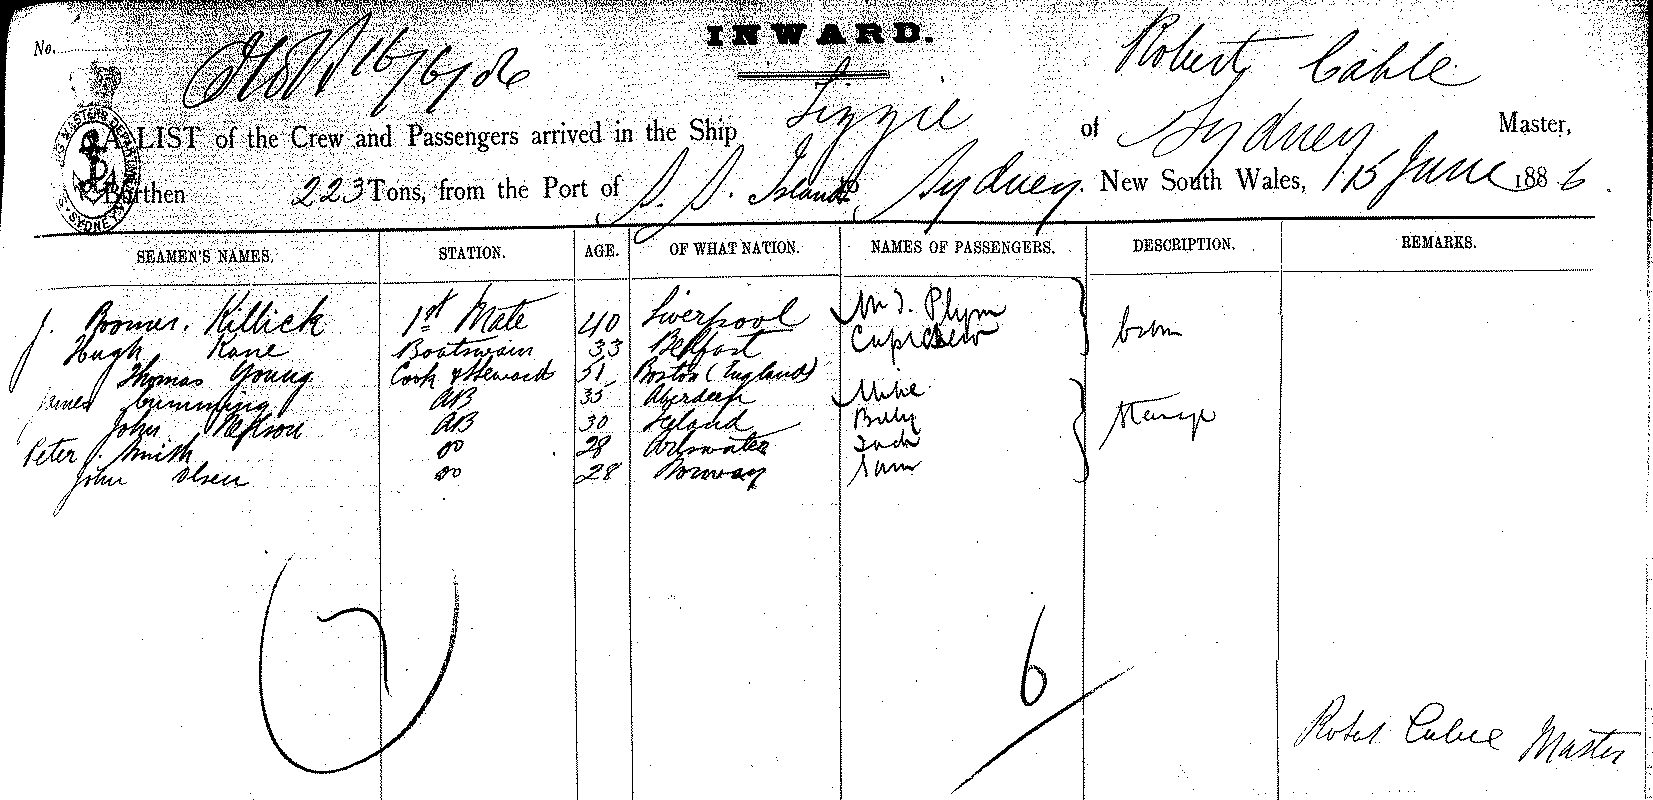 INWARD.
No. 16/6/86
Robert Cable
A LIST of the Crew and Passengers arrived in the Ship Lizzie of Sydney Master,
Burthen 223 Tons, from the Port of S. S. Islands to Sydney. New South Wales, 15 June 1886.
SEAMEN'S NAMES. STATION. AGE. OF WHAT NATION. NAMES OF PASSENGERS. DESCRIPTION. REMARKS.
J. Killick 1st Mate 40 Liverpool
Hugh Kane Boatswain 33 Belfast
Thomas Young Cook & Steward 51 Boston (England)
James Cumming AB 35 Aberdeen Mike
John AB 30 Billy
Peter J. Smith do 28 Jack
John Olsen do 28 Norway Sam
7
6
Robt Cable Master